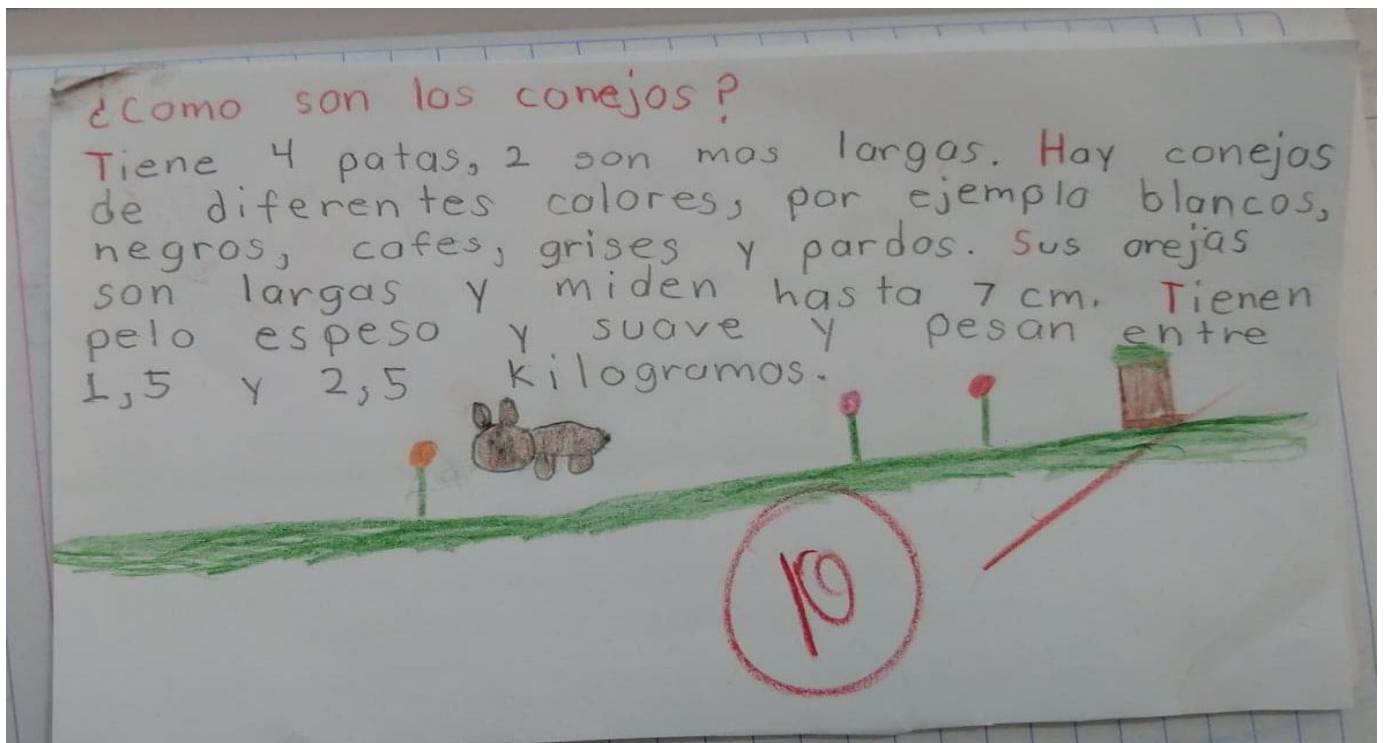 ¿Como son los conejos?
Tiene 4 patas, 2 son mas largas. Hay conejos
de diferentes colores, por ejemplo blancos,
negros, cafes, grises y pardos. Sus orejas
son largas y miden hasta 7 cm. Tienen
pelo espeso y suave y pesan entre
1,5 y 2,5 kilogramos.
10